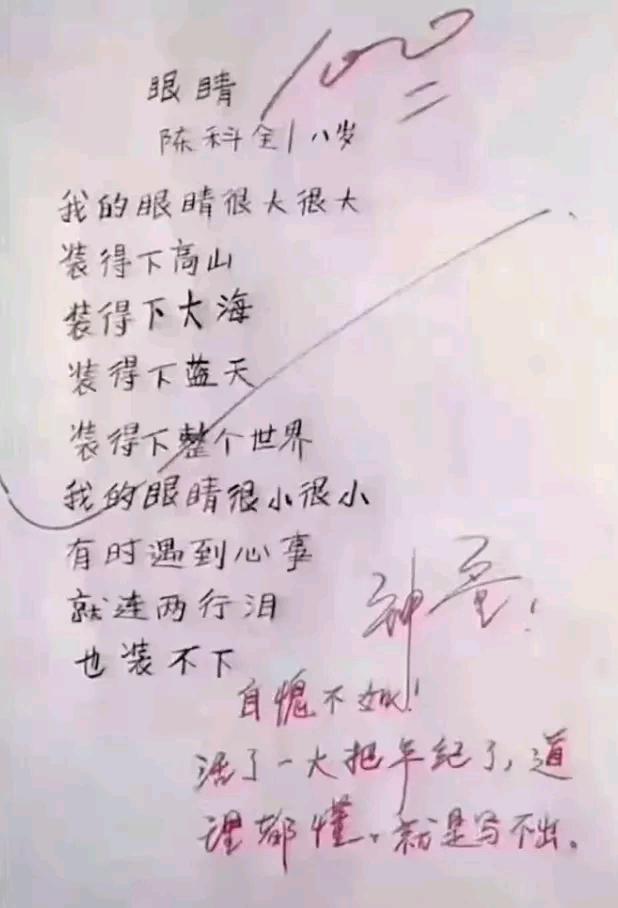 眼睛
100
陈科全/八岁
我的眼睛很大很大
装得下高山
装得下大海
装得下蓝天
装得下整个世界
我的眼睛很小很小
有时遇到心事
就连两行泪
也装不下
神童!
自愧不如!
活了一大把年纪了,道
理都懂。就是写不出。